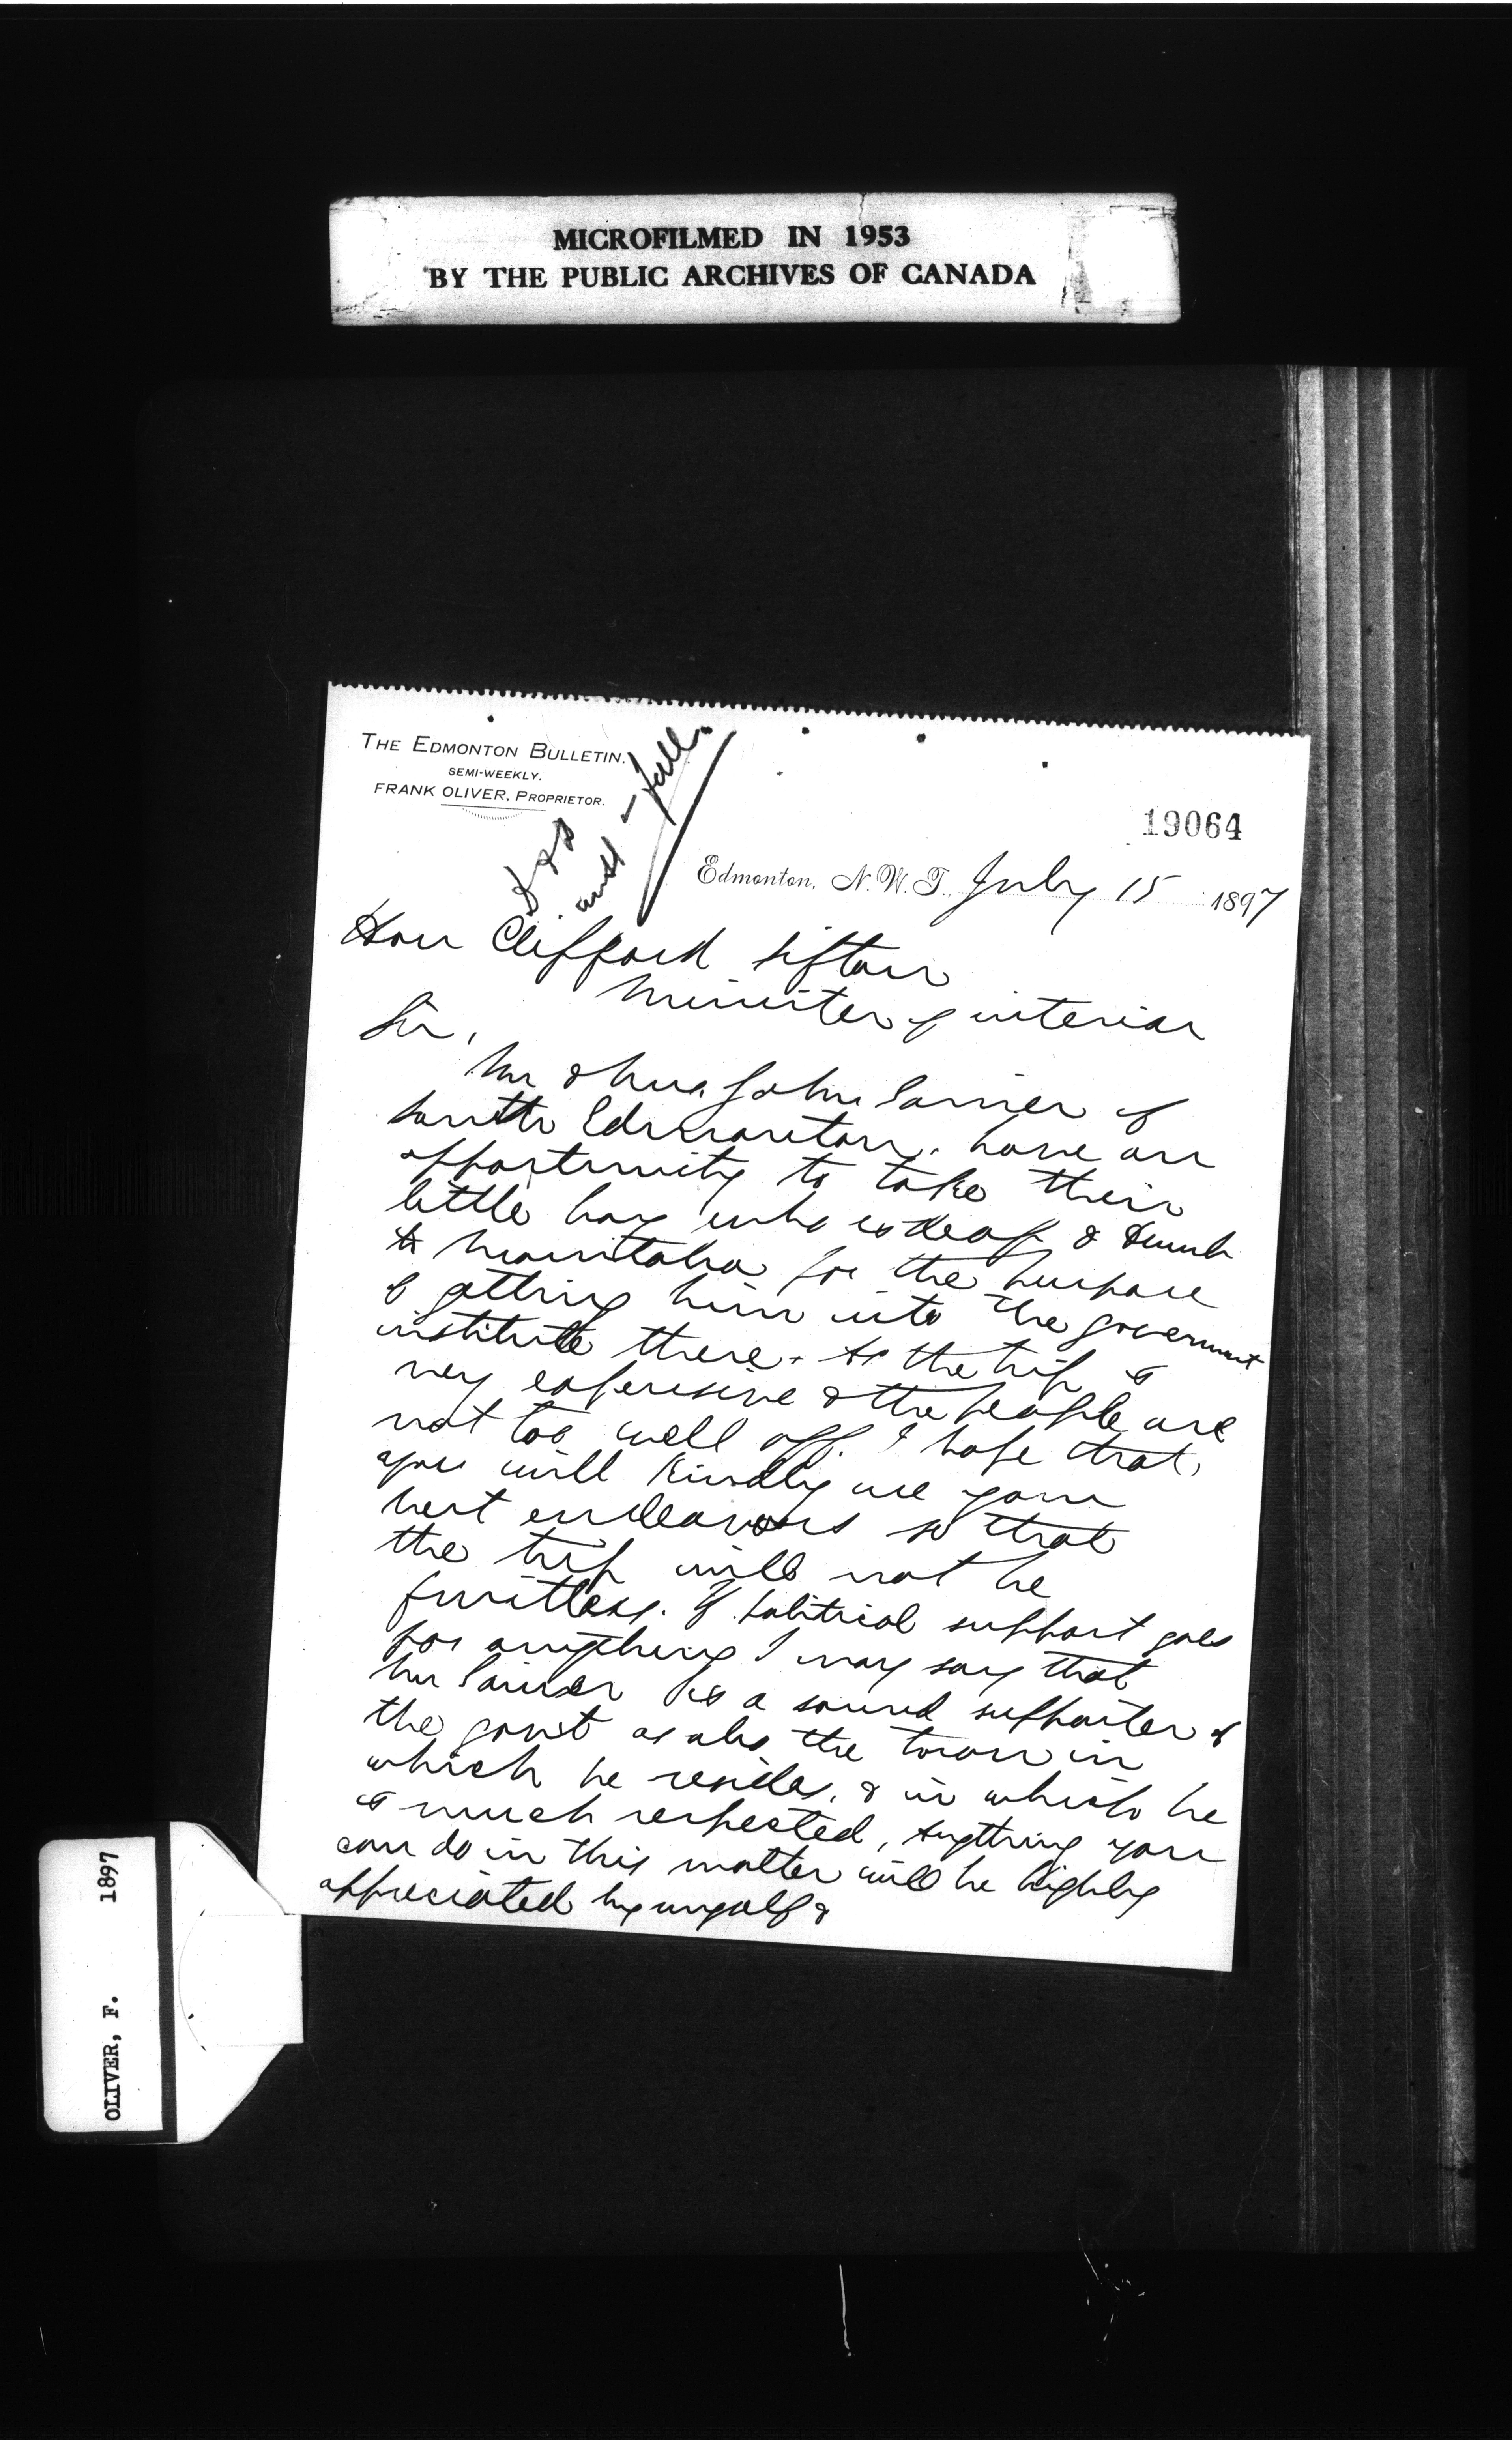 MICROFILMED IN 1953
BY THE PUBLIC ARCHIVES OF CANADA
THE EDMONTON BULLETIN,
SEMI-WEEKLY.
FRANK OLIVER, PROPRIETOR.
19064
Edmonton, N.W.T., July 15 1897
Hon Clifford Sifton
Minister of interior
Sir,
Mr & Mrs. John of
South Edmonton. have an
opportunity to take their
little boy who is deaf & dumb
to Manitoba for the purpose
of getting him into the government
institute there. As the trip is
very expensive & the people are
not too well off. I hope that
you will kindly use your
best endeavors so that
the trip will not be
fruitless. If political support goes
for anything I may say that
Mr is a sound supporter of
the govt as also the town in
which he resides, & in which he
is much respected, Anything you
can do in this matter will be highly
appreciated by myself &
OLIVER, F. 1897